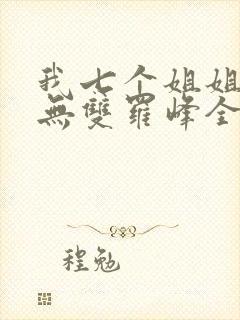 我七个姐姐
無雙羅峰全
程勉